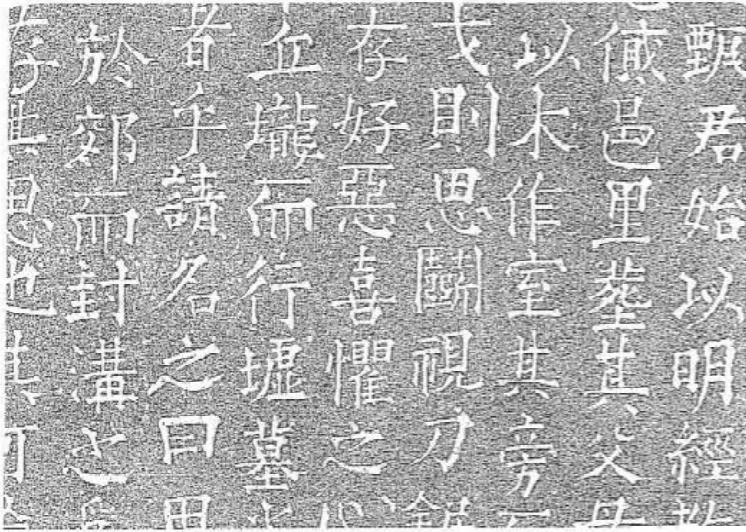 甄君始以明經教
邑里葬其父母
以木作室其旁而
戈則思鬭視刀鋸
存好惡喜懼之心
丘壠而行墟墓之
者乎請名之曰思
於郊而封溝之爲
存其思也其可